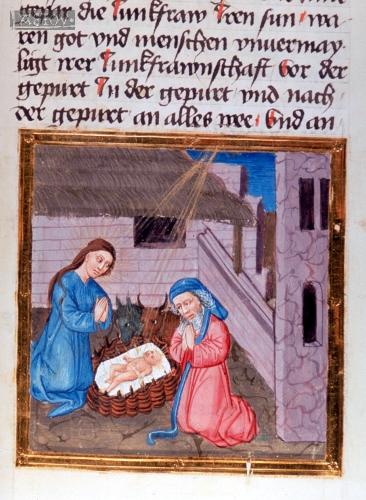 gepar die Junkfraw Jren sun wa
ren got vnd menschen vnuermay
ligt irer Junkfrawnschaft vor der
gepurt Jn der gepurt vnd nach
der gepurt an alles wee Vnd an